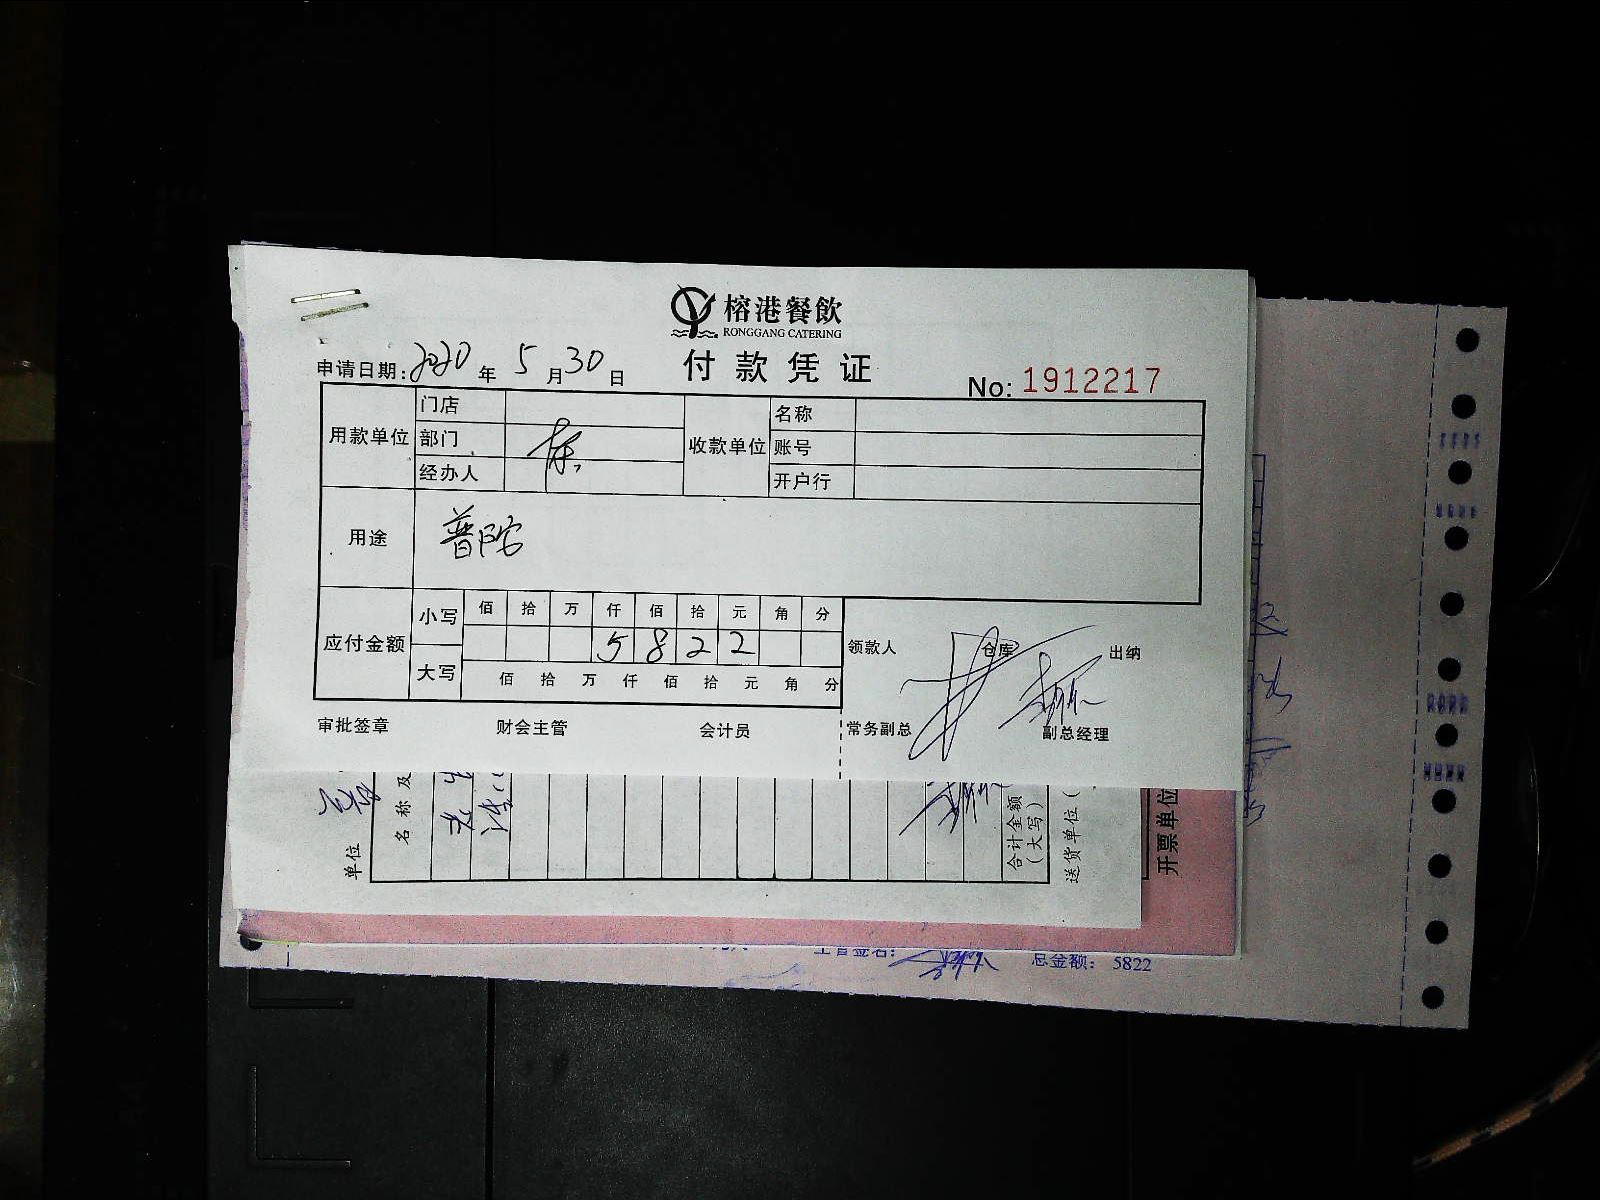 榕港餐飲
RONGGANG CATERING
付款凭证
申请日期: 2020 年 5 月 30 日
No: 1912217
用款单位 门店 收款单位 名称
部门 账号
经办人 开户行
用途 普陀
应付金额 小写 佰 拾 万 仟 佰 拾 元 角 分
5 8 2 2
大写 佰 拾 万 仟 佰 拾 元 角 分
领款人 仓库 出纳
审批签章 财会主管 会计员 常务副总 副总经理
单位
名称及
合计金额
(大写)
送货单位(
开票单位
主管签名: 总金额: 5822